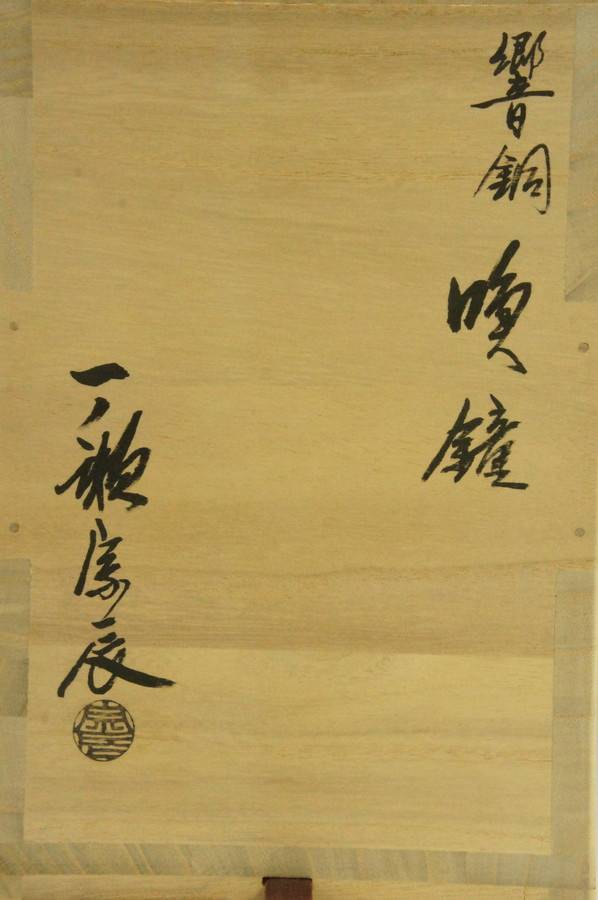 響銅 喚鐘
一ノ瀬宗辰